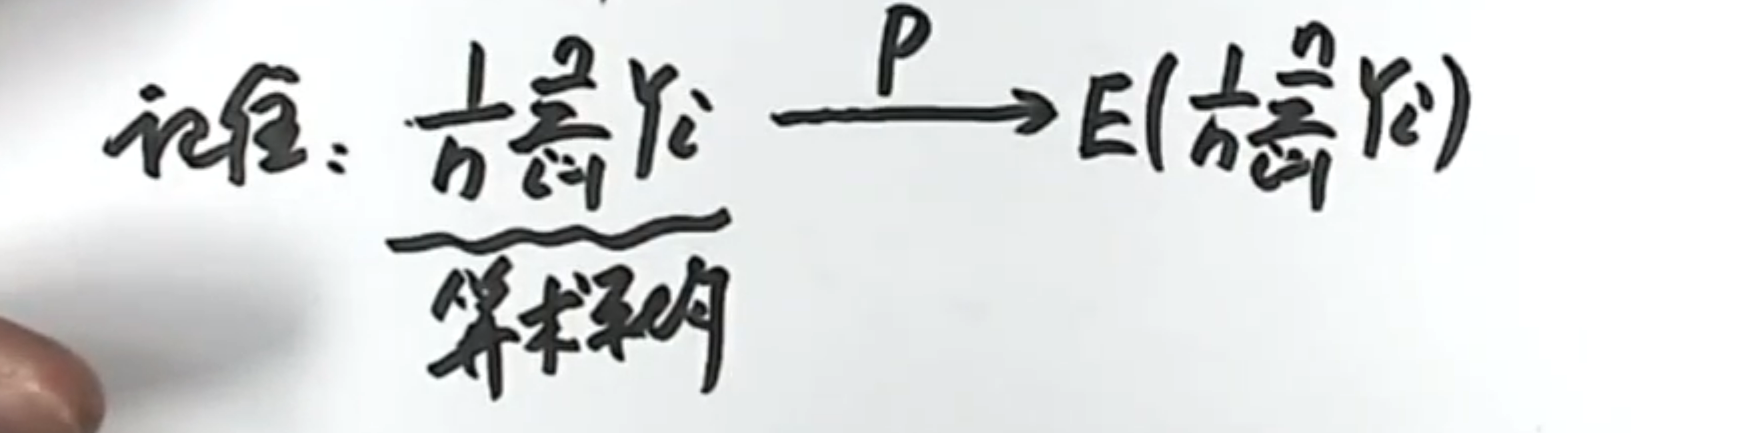 记住: $\frac{1}{n}\sum_{i=1}^{n} Y_i \xrightarrow{P} E(\frac{1}{n}\sum_{i=1}^{n} Y_i)$
算术平均